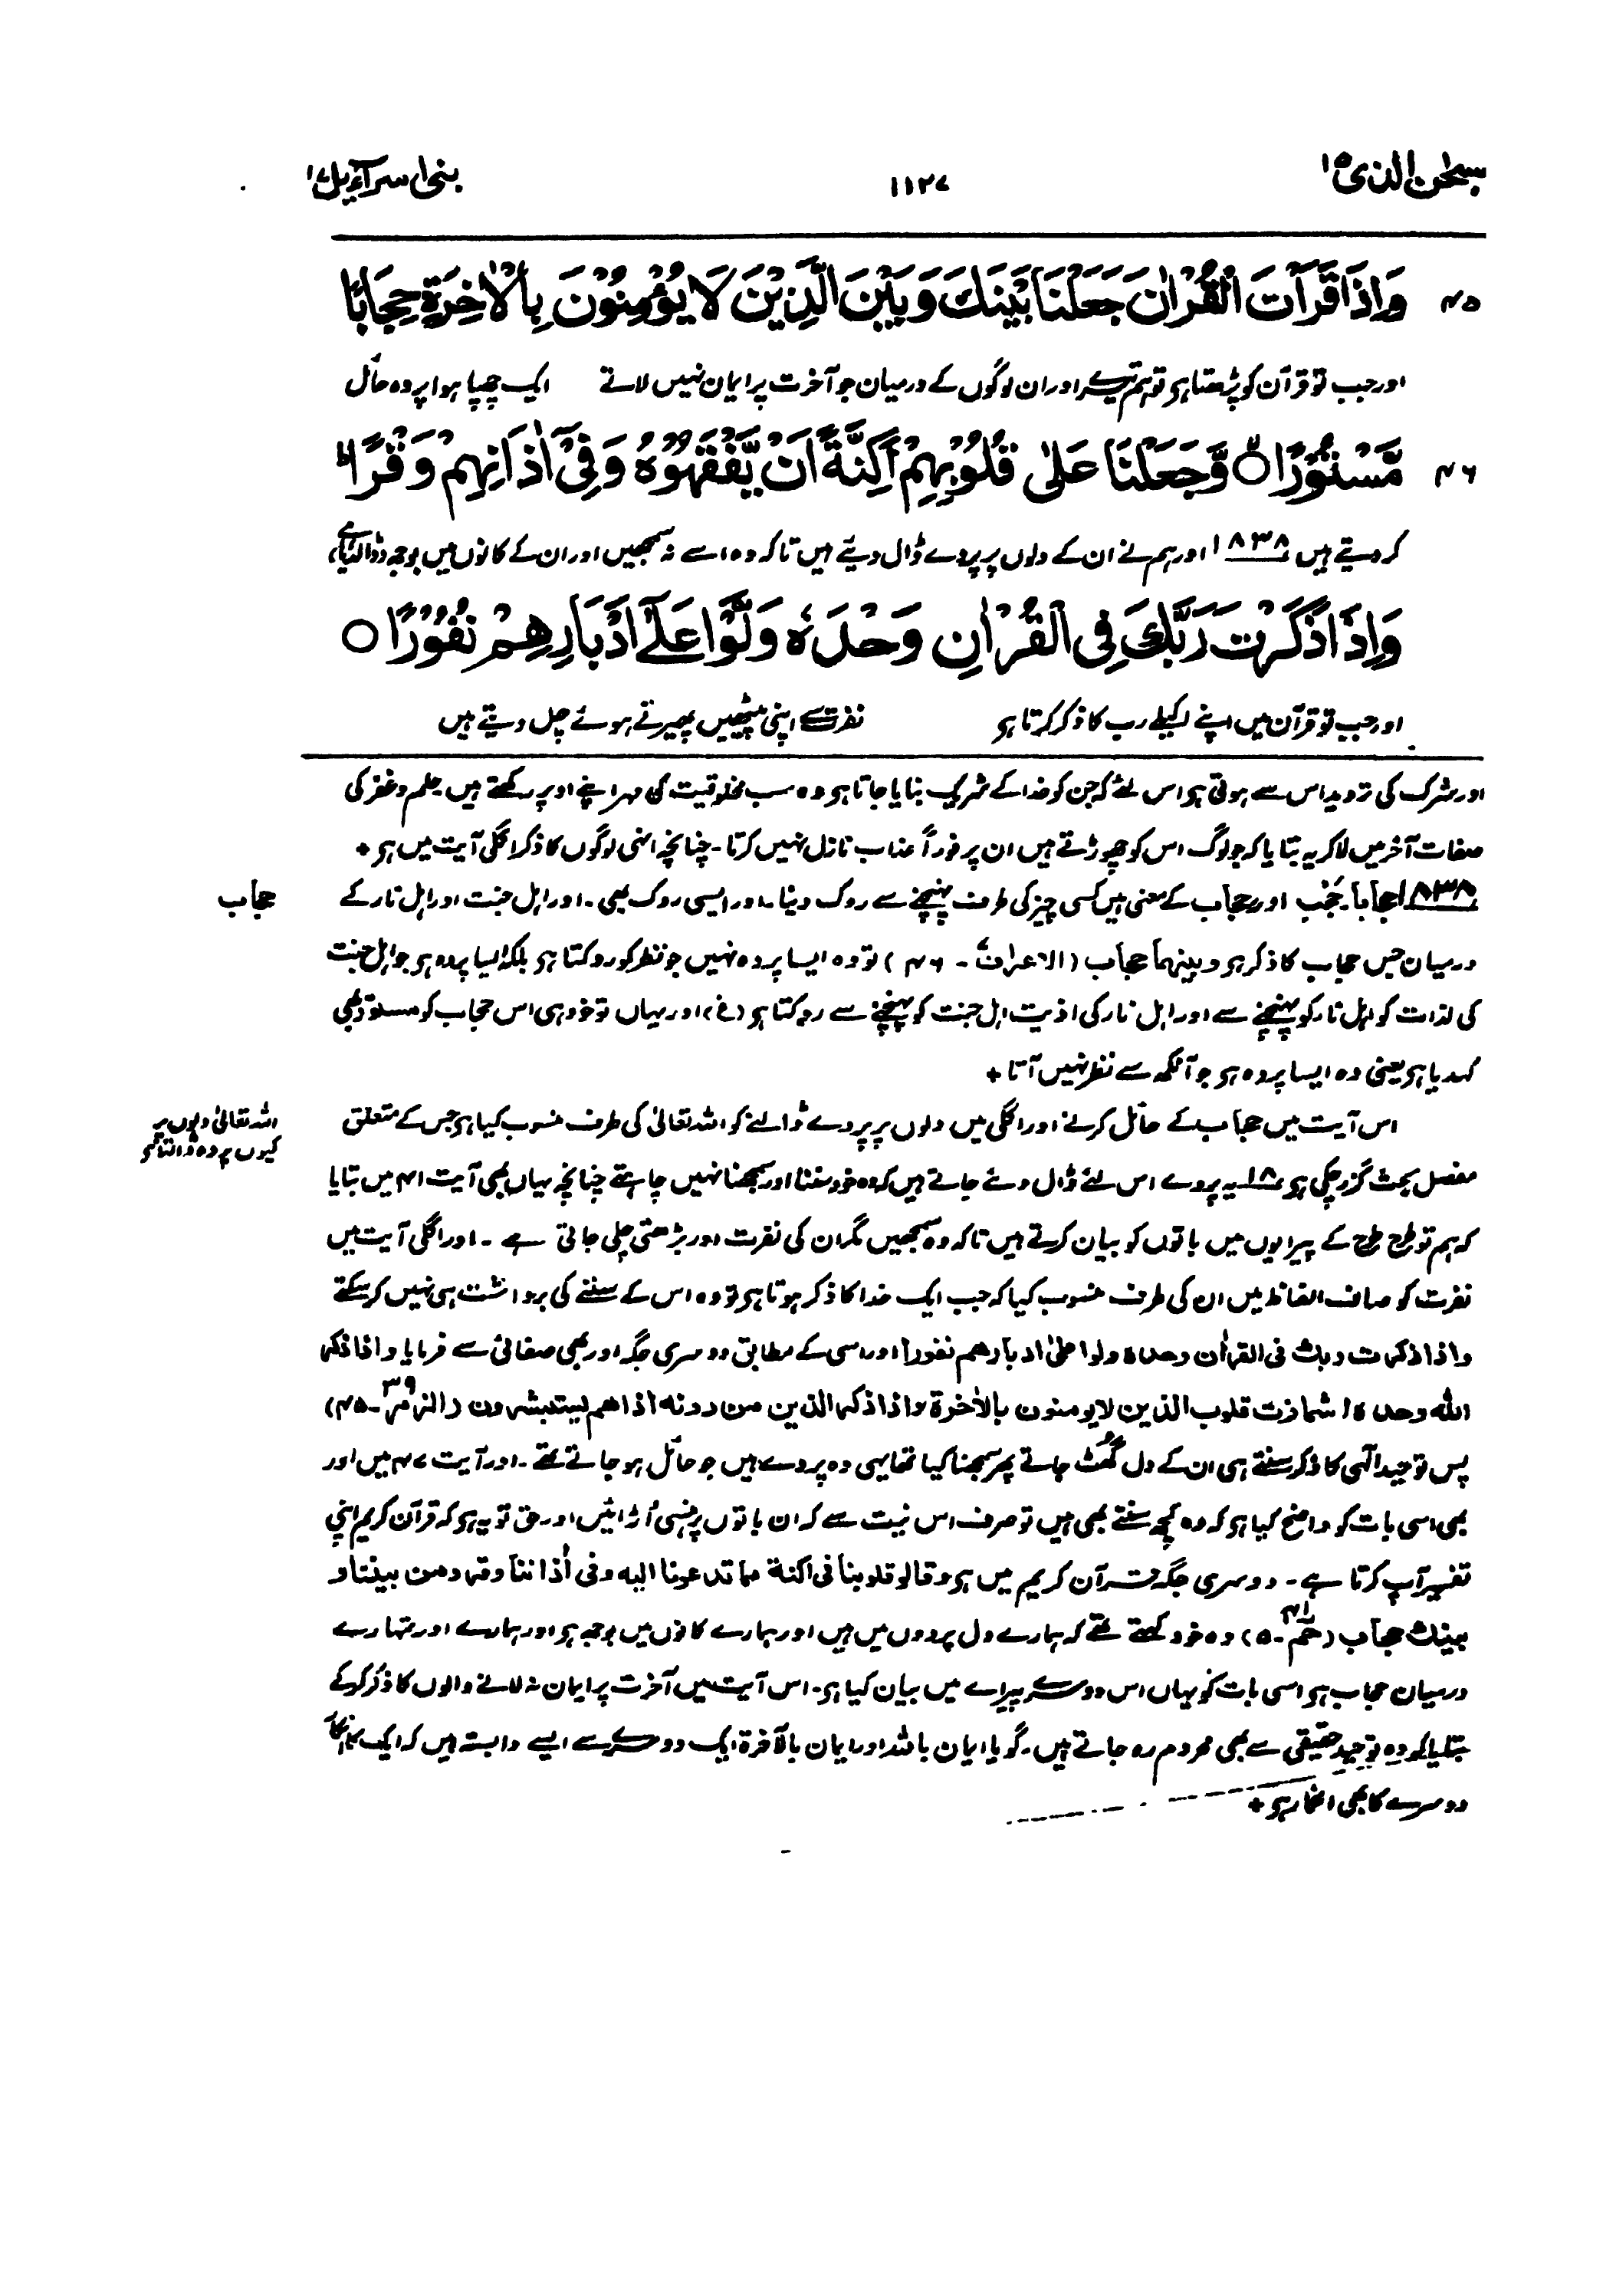 سبحٰن الذی ١٥
١١٢٧
بنی اسرآءیل ١٧
٤٥ وَاِذَا قَرَاْتَ الْقُرْاٰنَ جَعَلْنَا بَيْنَكَ وَبَيْنَ الَّذِيْنَ لَا يُؤْمِنُوْنَ بِالْاٰخِرَةِ حِجَابًا
اور جب تو قرآن کو پڑھتا ہو تو ہم تیرے اور ان لوگوں کے درمیان جو آخرت پر ایمان نہیں لاتے ایک چھپا ہوا پردہ حائل
٤٦ مَّسْتُوْرًا ○ وَّجَعَلْنَا عَلٰى قُلُوْبِهِمْ اَكِنَّةً اَنْ يَّفْقَهُوْهُ وَفِيْٓ اٰذَانِهِمْ وَقْرًا ط
کر دیتے ہیں ١٨٣٨ اور ہم نے ان کے دلوں پر پردے ڈال دیئے ہیں تاکہ وہ اسے نہ سمجھیں اور ان کے کانوں میں بوجھ
وَاِذَا ذَكَرْتَ رَبَّكَ فِي الْقُرْاٰنِ وَحْدَهٗ وَلَّوْا عَلٰٓى اَدْبَارِهِمْ نُفُوْرًا ○
اور جب تو قرآن میں اپنے اکیلے رب کا ذکر کرتا ہو نفرت سے اپنی پیٹھیں پھیرتے ہوئے چل دیتے ہیں
اور شرک کی تردید اس سے ہوتی ہو اس لئے کہ جن کو خدا کے شریک بنایا جاتا ہو وہ سب مخلوقیت کی مہر اپنے اوپر رکھتے ہیں۔ حلم و غفر کی
صفات آخر میں لاکر یہ بتایا کہ جو لوگ اس کو چھوڑتے ہیں ان پر فوراً عذاب نازل نہیں کرتا۔ چنانچہ انہی لوگوں کا ذکر اگلی آیت میں ہو +
١٨٣٨ حجاباً۔ حَجْب اور حجاب کے معنی ہیں کسی چیز کی طرف پہنچنے سے روک دینا۔ اور ایسی روک بھی۔ اور اہل جنت اور اہل نار کے
حجاب
درمیان جس حجاب کا ذکر ہو وبینھما حجاب (الاعراف ۔ ٤٦) تو وہ ایسا پردہ نہیں جو نظر کو روکتا ہو بلکہ ایسا پردہ ہو جو اہل جنت
کی لذات کو اہل نار کو پہنچنے سے اور اہل نار کی اذیت اہل جنت کو پہنچنے سے روکتا ہو (غ) اور یہاں تو خود ہی اس حجاب کو مستور بھی
کہدیا ہو یعنی وہ ایسا پردہ ہو جو آنکھ سے نظر نہیں آتا +
اس آیت میں حجاب کے حائل کرنے اور اگلی میں دلوں پر پردے ڈالنے کو اللہ تعالیٰ کی طرف منسوب کیا ہو جس کے متعلق
اللہ تعالیٰ دلوں پر
کیوں پردہ ڈالتا ہو
مفصل بحث گزر چکی ہو ١٨ یہ پردے اس لئے ڈال دئے جاتے ہیں کہ وہ خود سننا اور سمجھنا نہیں چاہتے چنانچہ یہاں بھی آیت ٤١ میں بتایا
کہ ہم تو طرح طرح کے پیرایوں میں باتوں کو بیان کرتے ہیں تاکہ وہ سمجھیں مگر ان کی نفرت اور بڑھتی چلی جاتی ہے ۔ اور اگلی آیت میں
نفرت کو صاف الفاظ میں ان کی طرف منسوب کیا کہ جب ایک خدا کا ذکر ہوتا ہو تو وہ اس کے سننے کی برداشت ہی نہیں کر سکتے
واذا ذکرت ربک فی القراٰن وحدہ ولوا علیٰ ادبارھم نفوراً اور اسی کے مطابق دوسری جگہ اور بھی صفائی سے فرمایا واذا ذکر
اللہ وحدہ اشمازت قلوب الذین لا یومنون بالاٰخرۃ واذا ذکر الذین من دونہ اذا ھم یستبشرون (الزمر ٣٩ ۔ ٤٥)
پس توحید الٰہی کا ذکر سنتے ہی ان کے دل گھُٹ جاتے پھر سمجھنا کیا تھا یہی وہ پردے ہیں جو حائل ہو جاتے تھے۔ اور آیت ٤٧ میں اور
بھی اسی بات کو واضح کیا ہو کہ وہ کچھ سنتے بھی ہیں تو صرف اس نیت سے کہ ان باتوں پر ہنسی اُڑائیں اور حق تو یہ ہو کہ قرآن کریم اپنی
تفسیر آپ کرتا ہے ۔ دوسری جگہ قرآن کریم میں ہو وقالو قلوبنا فی اکنۃ مما تدعونا الیہ وفی اٰذاننا وقر ومن بیننا و
بینک حجاب (حٰم ٤١ ۔ ٥) وہ خود کہتے تھے کہ ہمارے دل پردوں میں ہیں اور ہمارے کانوں میں بوجھ ہو اور ہمارے اور تمہارے
درمیان حجاب ہو اسی بات کو یہاں اس دوسرے پیرائے میں بیان کیا ہو۔ اس آیت میں آخرت پر ایمان نہ لانے والوں کا ذکر کرکے
بتلایا کہ وہ توحید حقیقی سے بھی محروم رہ جاتے ہیں۔ گویا ایمان باللہ اور ایمان بالآخرۃ ایک دوسرے سے ایسے وابستہ ہیں کہ ایک کا انکار
دوسرے کا بھی انکار ہو +